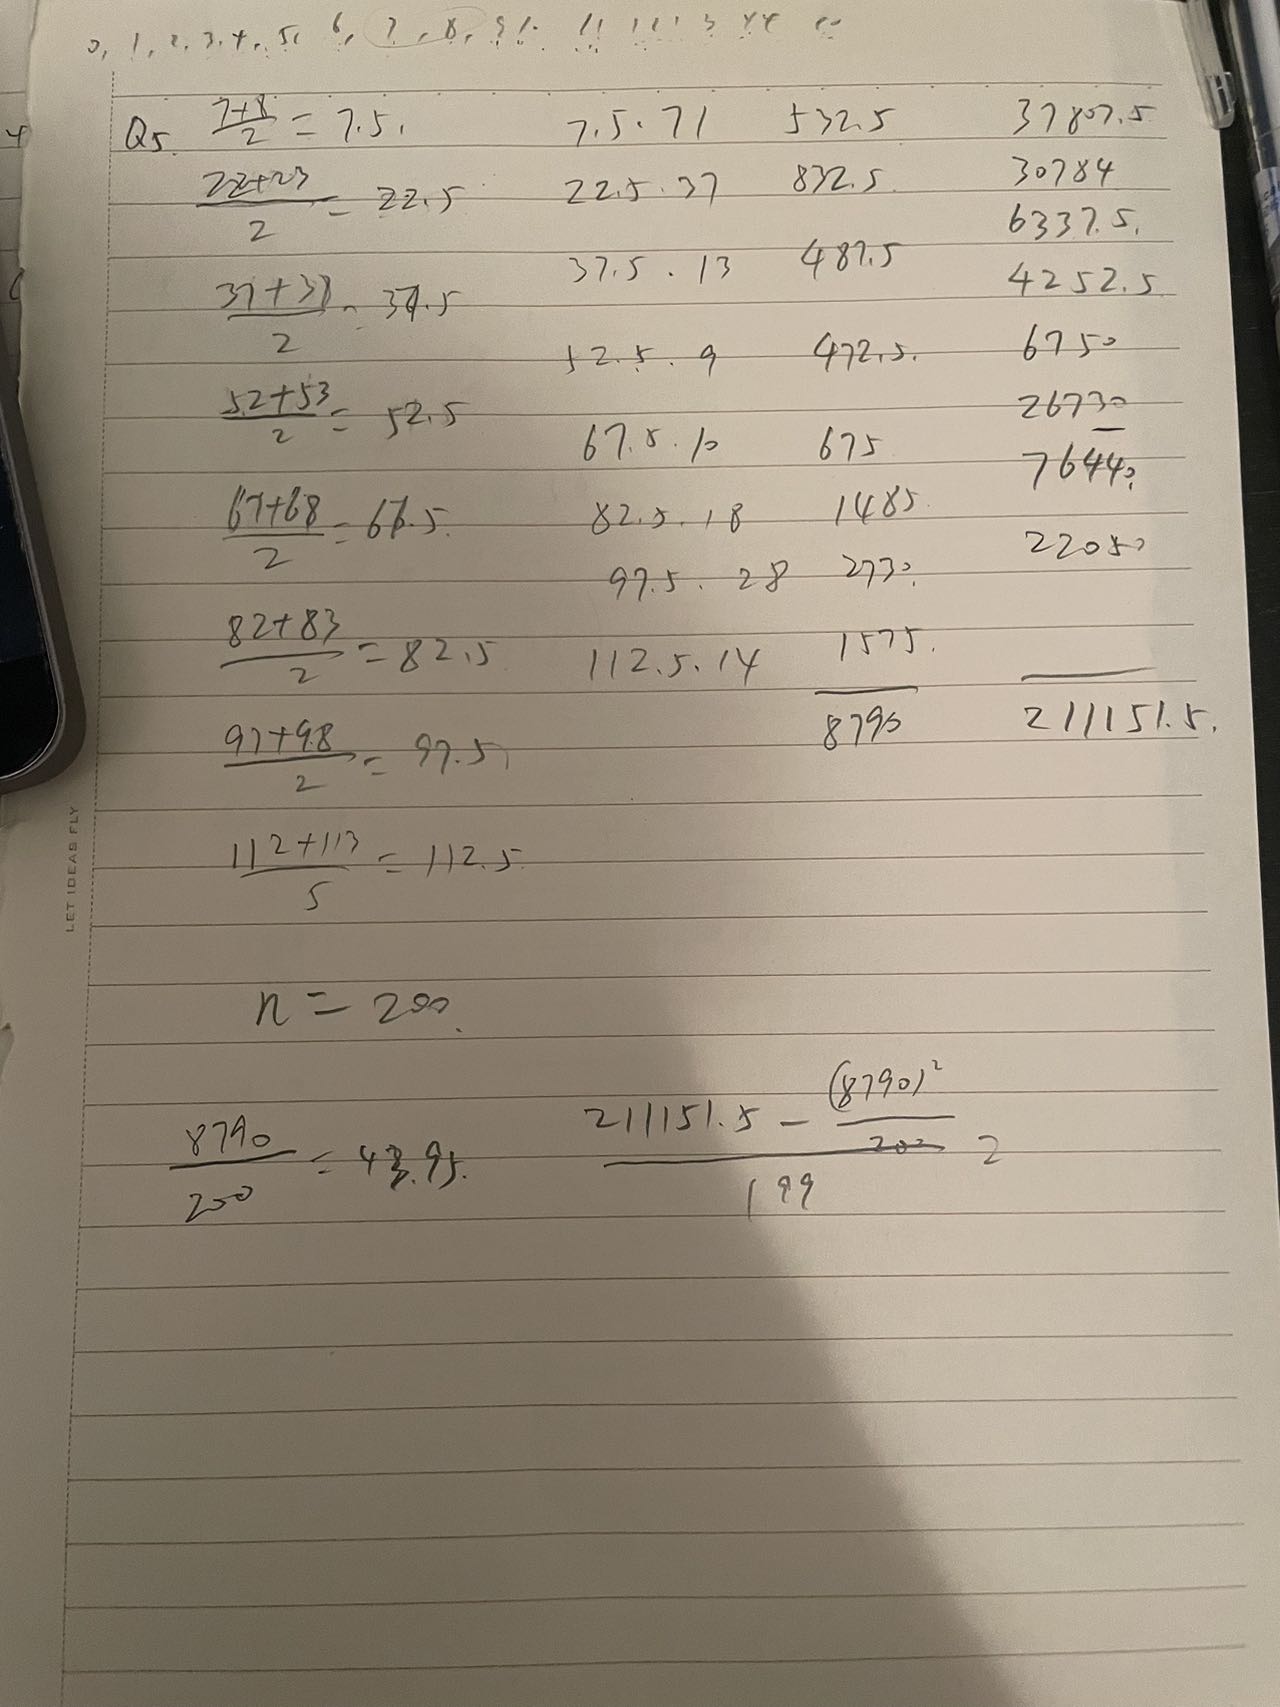 0, 1, 2, 3, 4, 5, 6, 7, 8, 9
Q5. (7+8)/2 = 7.5. 7.5·71 532.5 37807.5
(22+23)/2 = 22.5 22.5·37 832.5. 30784
6337.5.
(37+38)/2 = 37.5 37.5·13 487.5 4252.5
52.5·9 472.5. 6750
(52+53)/2 = 52.5 26730
67.5·10 675 76440.
(67+68)/2 = 67.5. 82.5·18 1485. 22050
97.5·28 2730.
(82+83)/2 = 82.5 112.5·14 1575.
8790 211151.5.
(97+98)/2 = 97.5
(112+113)/5 = 112.5
n = 200.
8790/200 = 43.95. (211151.5 - (8790)²/200)/199 2
LET IDEAS FLY